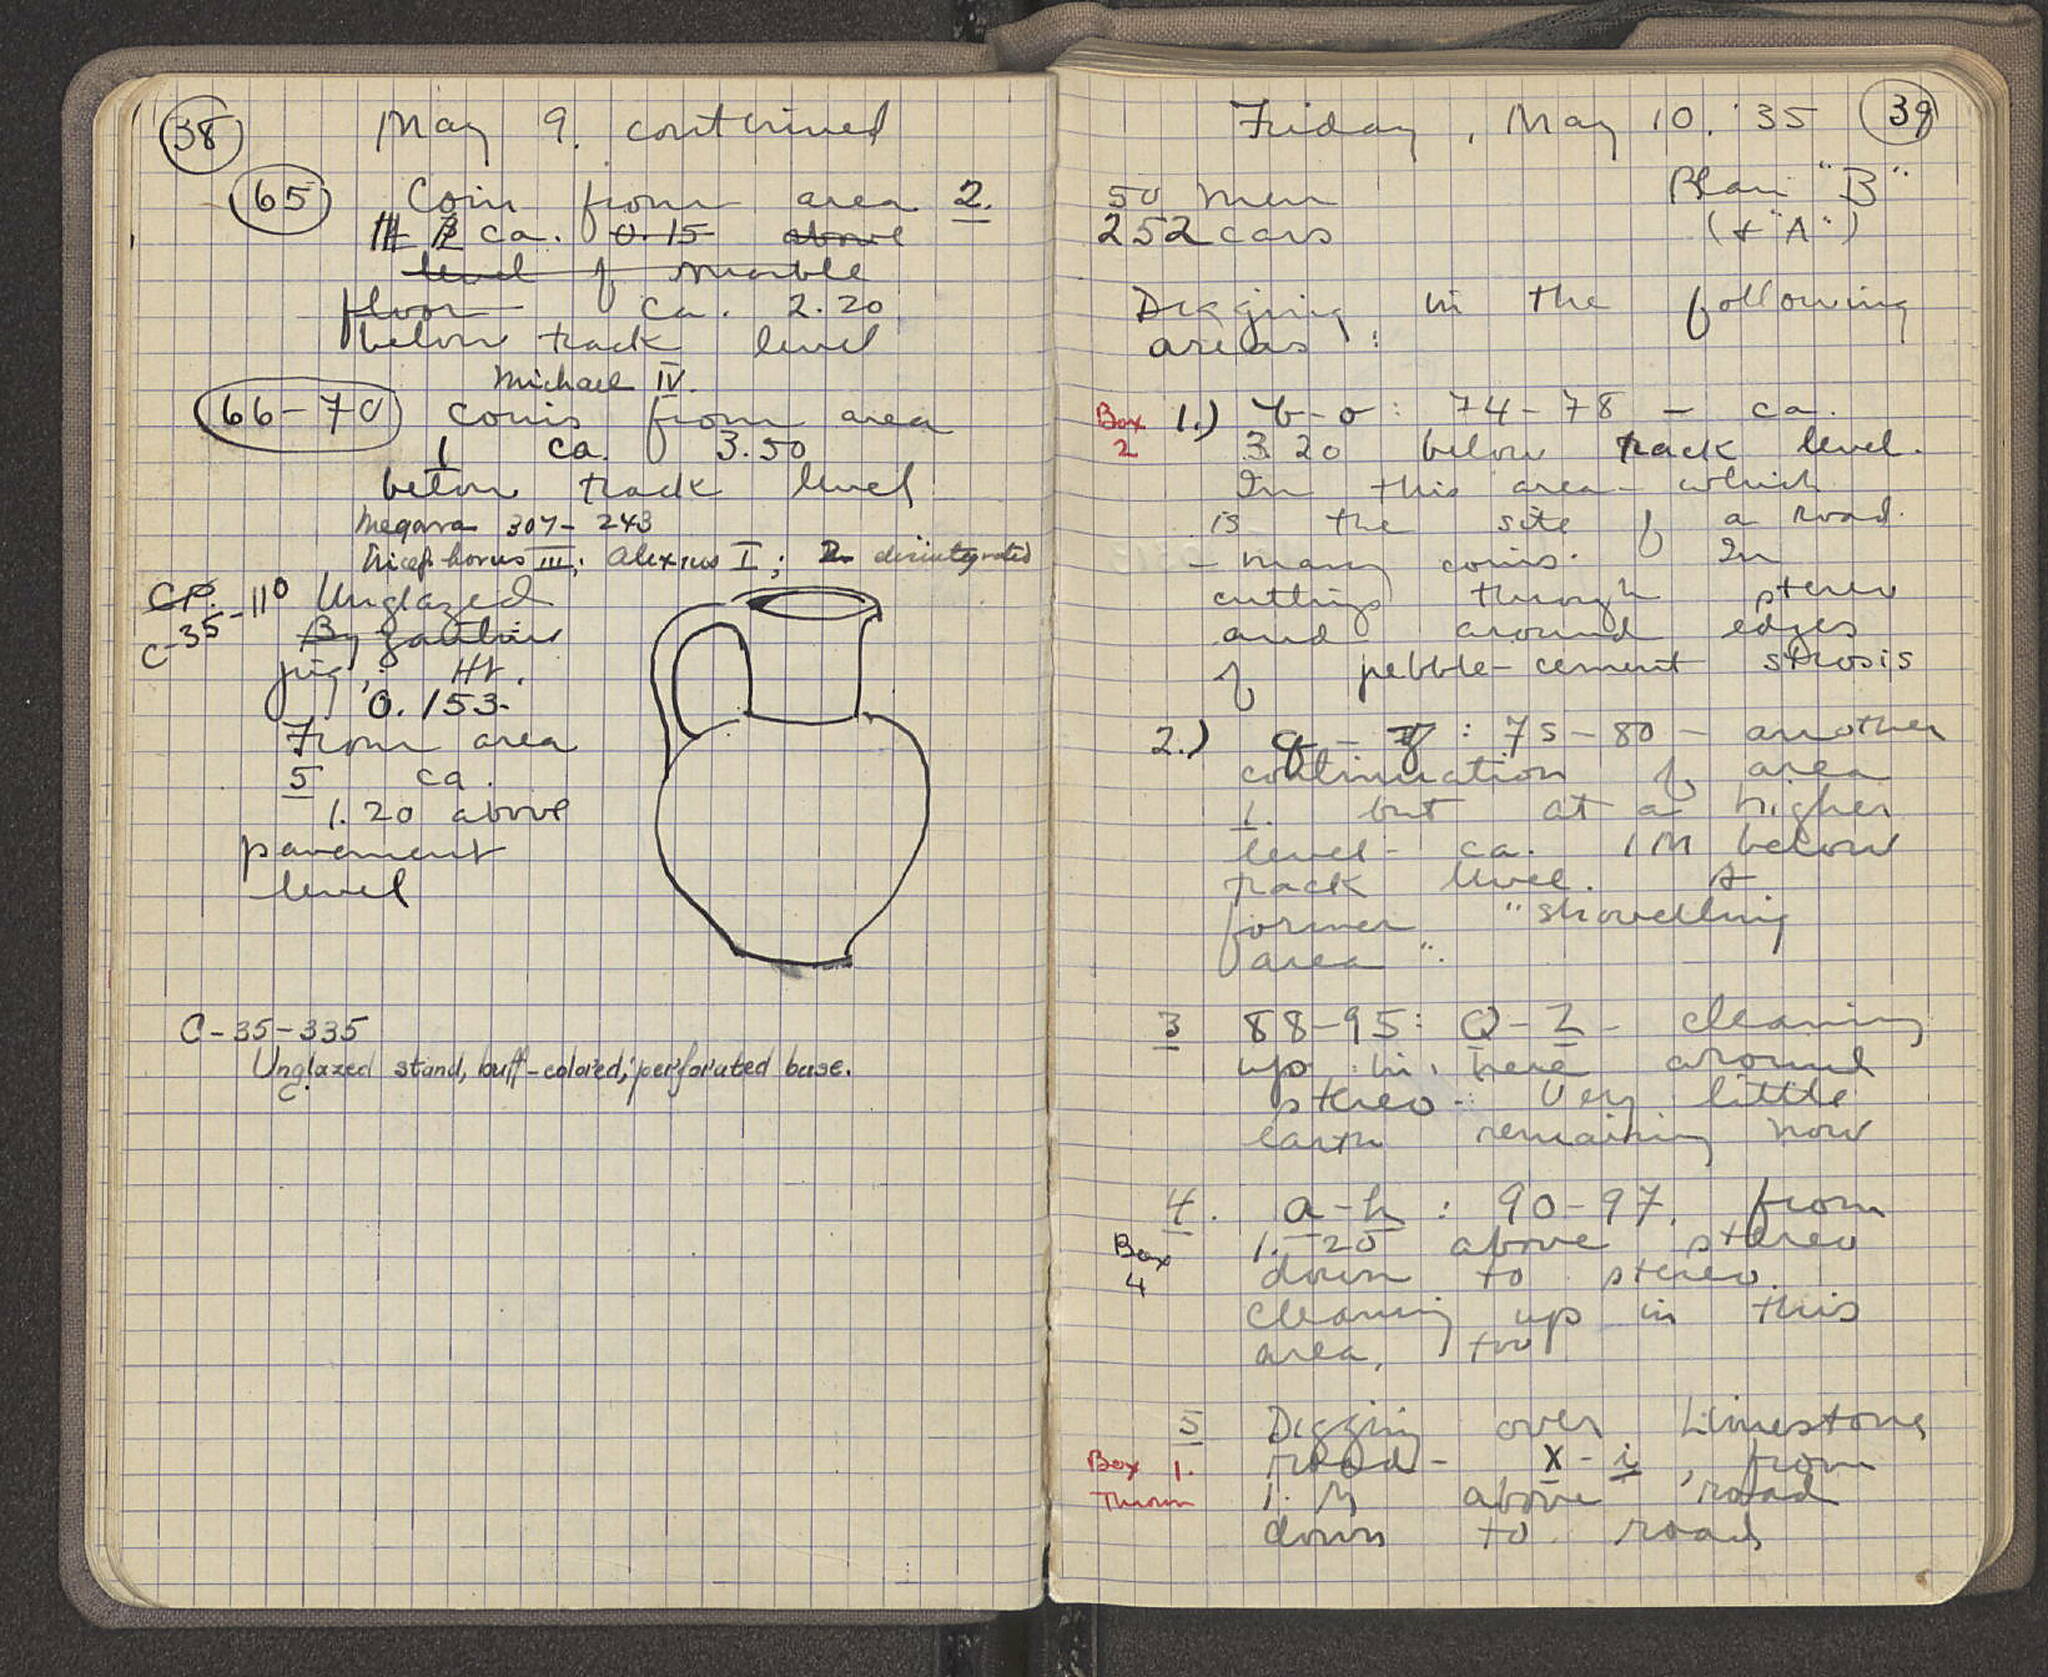 38
May 9. continued
65 Coin from area 2.
ca. 0.15 above
level of marble
floor ca. 2.20
below track level
Michael IV.
66-70 coins from area
1 ca. 3.50
below track level
Megara 307-243
Nicephorus III; Alexius I; 2 disintegrated
CP.
C-35-110 Unglazed
Byzantine
jug; Ht.
0.153-
From area
5 ca.
1.20 above
pavement
level
C-35-335
Unglazed stand, buff-colored, perforated base.
Friday, May 10. '35 39
50 men Plan "B"
252 cars (+ "A")
Digging in the following
areas:
Box 2
1.) b-o: 74-78 - ca.
3.20 below track level.
In this area - which
is the site of a road.
- many coins. In
cuttings through stereo
and around edges
of pebble-cement strosis
2.) q - : 75-80 - another
continuation of area
1. but at a higher
level - ca. 1 M below
track level. A
former "shovelling
area".
3 88-95: Q-Z - cleaning
up in here around
stereo - Very little
earth remaining now
4. a-h: 90-97, from
Box 4
1.20 above stereo
down to stereo.
Cleaning up in this
area, too
5 Digging over Limestone
Box 1.
Thrown
road - x-i, from
1. M above road
down to road